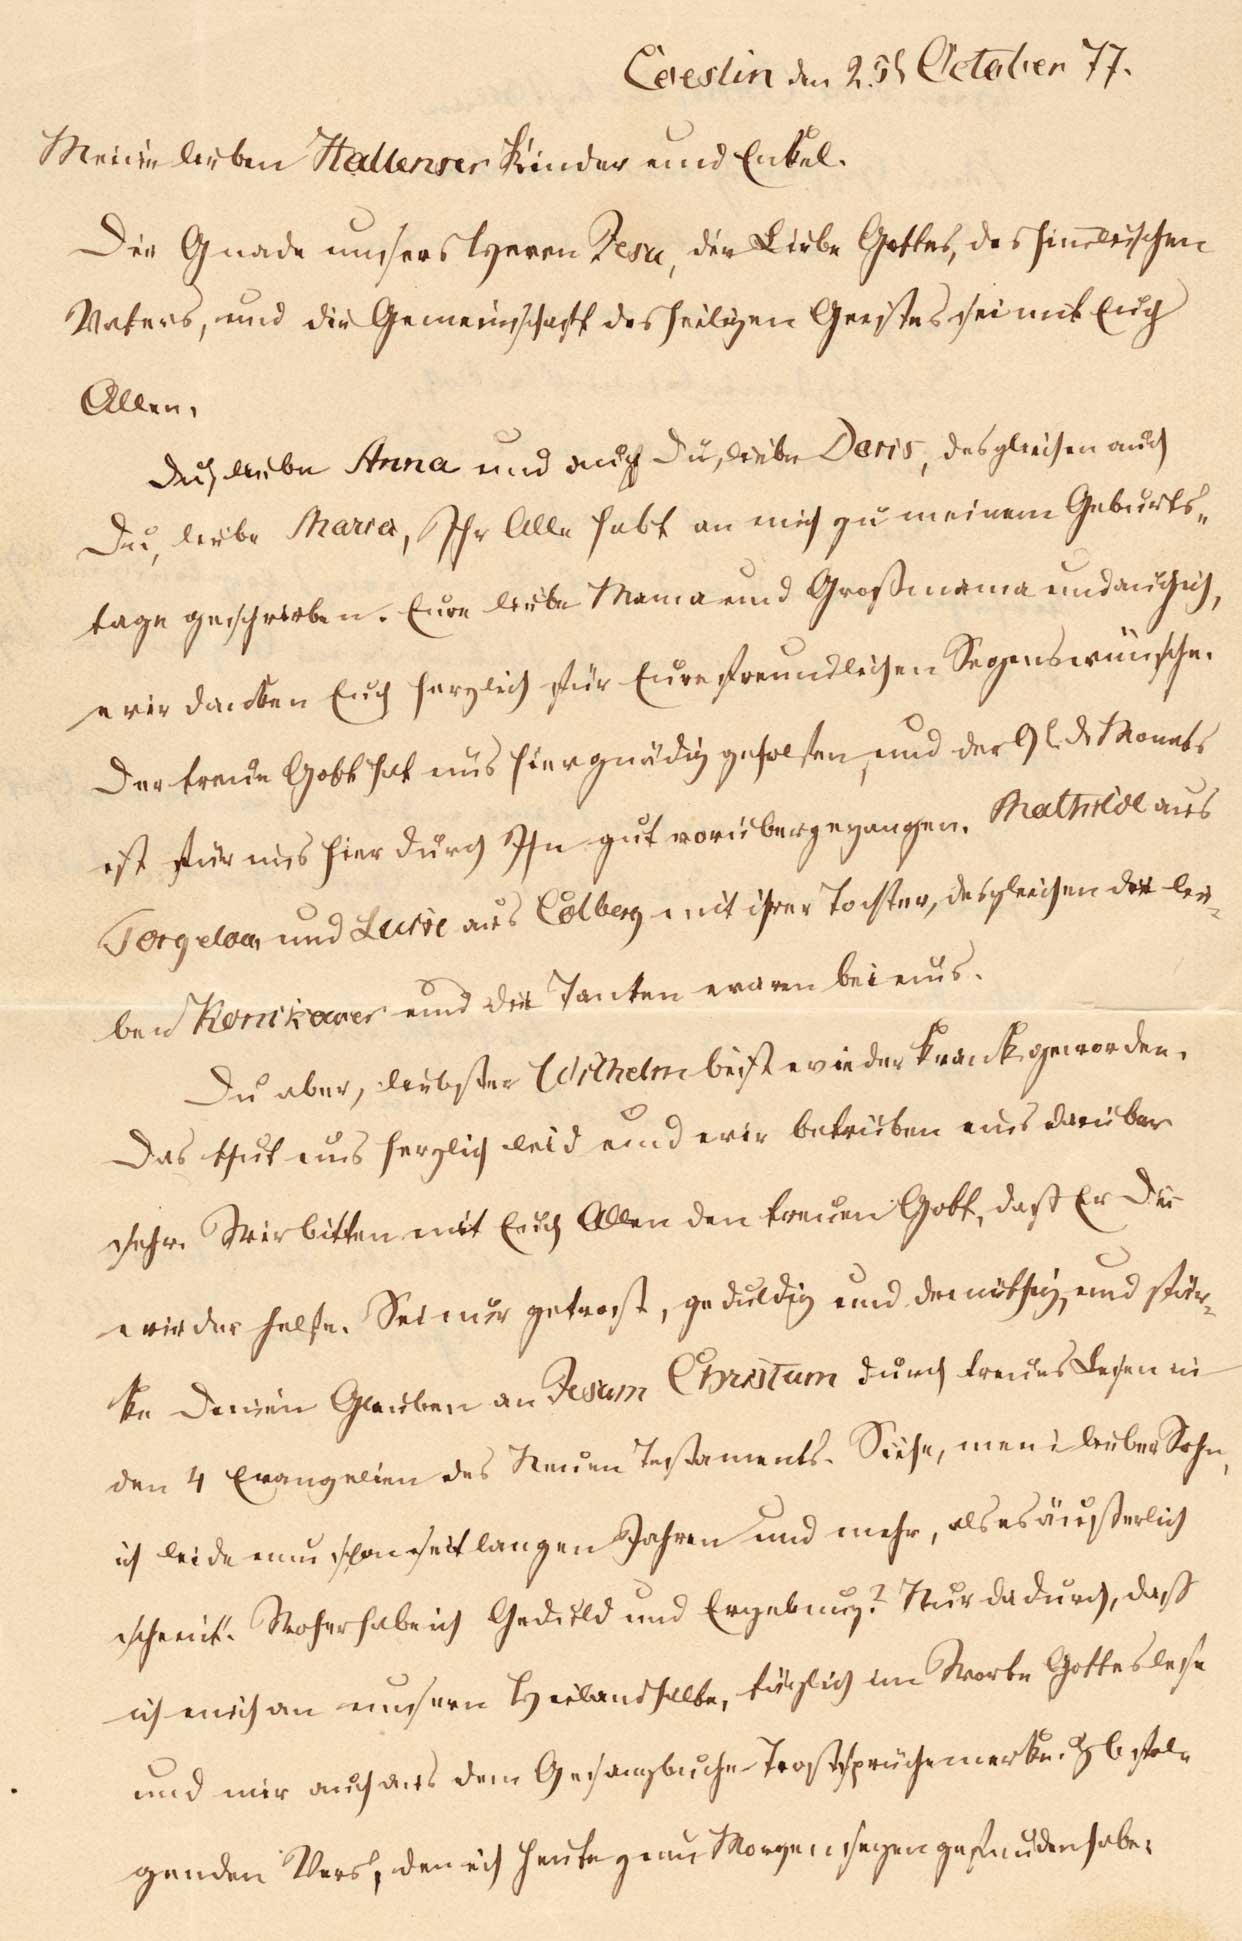 Coeslin den 25t October 77.
Meine lieben Hallenser Kinder und Enkel.
Die Gnade unsers Herrn Jesu, die Liebe Gottes, des himmlischen
Vaters, und die Gemeinschaft des heiligen Geistes sei mit Euch
Allen.
Du, liebe Anna und auch Du, liebe Doris, desgleichen auch
Du, liebe Maria, Ihr Alle habt an mich zu meinem Geburts-
tage geschrieben. Eure liebe Mama und Großmama und auch ich,
wir danken Euch herzlich für Eure freundlichen Segenswünsche.
Der treue Gott hat uns hier gnädig geholfen, und der 9t. d. Monats
ist für uns hier durch Ihn gut vorübergegangen. Mathilde aus
Torgelow und Luise aus Colberg mit ihrer Tochter, desgleichen die lie-
ben Konikower und die Tanten waren bei uns.
Du aber, liebster Wilhelm bist wieder krank geworden.
Das thut uns herzlich leid und wir betrüben uns darüber
sehr. Wir bitten mit Euch Allen den treuen Gott, daß Er Dir
wieder helfe. Sei nur getrost, geduldig und demüthig, und stär-
ke Deinen Glauben an Jesum Christum durch treues Lesen in
den 4 Evangelien des Neuen Testaments. Siehe, mein lieber Sohn,
ich leide nun schon seit langen Jahren und mehr, als es äußerlich
scheint. Woher habe ich Geduld und Ergebung? Nur dadurch, daß
ich mich an unsern Heiland halte, täglich im Worte Gottes lese
und mir auch aus dem Gesangbuche Trostsprüche merke. z b fol-
genden Vers, den ich heute zum Morgensegen gefunden habe: